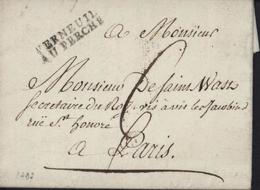 VERNEUIL
AU PERCHE
a Monsieur
Monsieur De Saint Wast
Secretaire du Roy vis a vis les Jacobins
rüe St honoré
6
a Paris.
1787